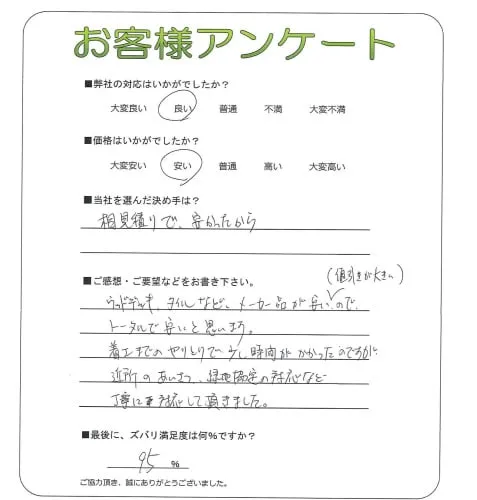 お客様アンケート
■弊社の対応はいかがでしたか？
大変良い 良い 普通 不満 大変不満
■価格はいかがでしたか？
大変安い 安い 普通 高い 大変高い
■当社を選んだ決め手は？
相見積りで、安かったから
■ご感想・ご要望などをお書き下さい。
(値引きが大きい)
ウッドデッキ、タイルなど、メーカー品が安いので、
トータルで安いと思います。
着工までのやりとりで少し時間がかかったのですが
近所のあいさつ、緑地協定の対応など
丁寧に対応して頂きました。
■最後に、ズバリ満足度は何%ですか？
95 %
ご協力頂き、誠にありがとうございました。